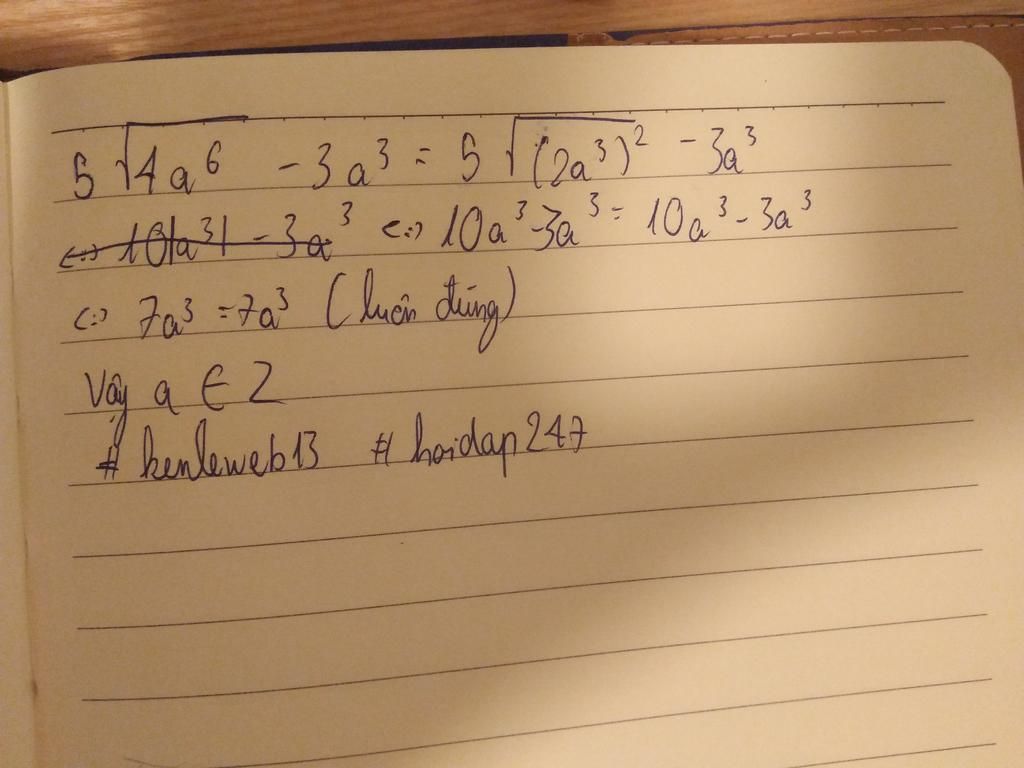 5 √4a⁶ - 3a³ = 5 √(2a³)² - 3a³
<=> 10|a³| - 3a³ <=> 10a³ - 3a³ = 10a³ - 3a³
<=> 7a³ = 7a³ (luôn đúng)
Vậy a ∈ Z
# kenleweb13 # hoidap247